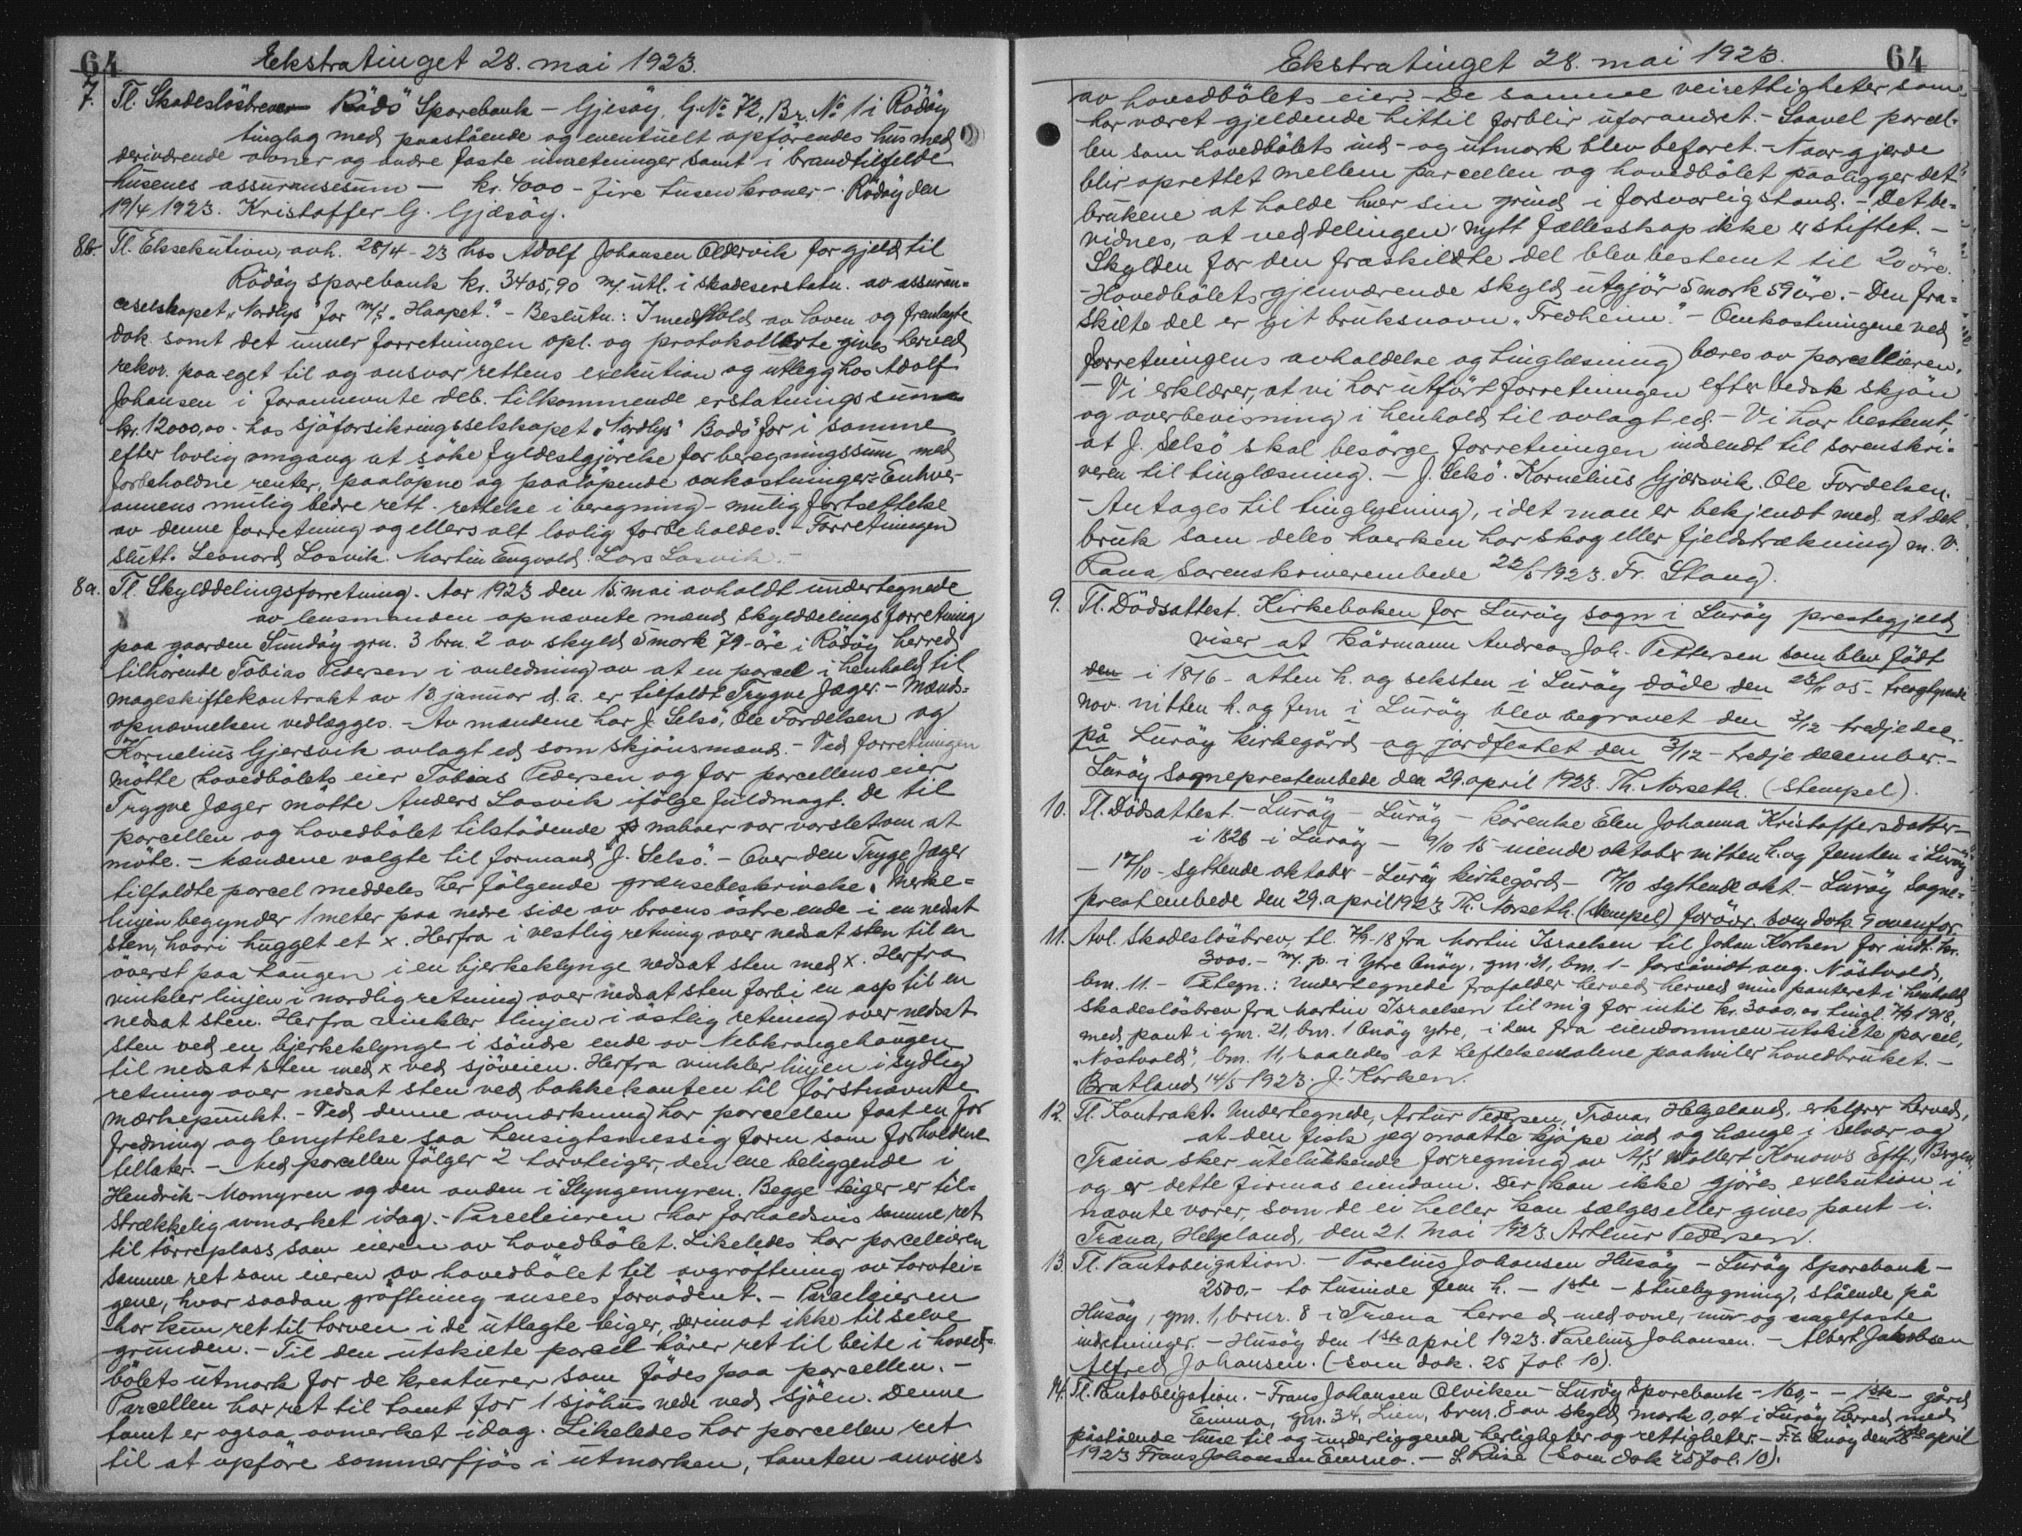 64
Ekstratinget 28. mai 1923.
7. Tl. Skadeslösbrev Rödö Sparebank – Gjesöy, G. No 72, Br. No 1 i Rödöy
tinglag med paastående og eventuelt opförendes hus med
derværende ovner og andre faste inretninger samt i brandtilfelde
husenes assuransesum – kr. 4000 – fire tusen kroner – Rödöy den
19/4 1923. Kristoffer G. Gjæsöy.
8b. Tl. Eksekution, avh. 28/4 - 23 hos Adolf Johansen Oldervik for gjeld til
Rödöy sparebank kr. 3405,90 m/ utl. i skadeserstatn. av assuran-
ceselskapet "Nordlys" for m/s "Haapet." – Beslutn.: I medhold av loven og fremlagte
dok samt det under forretningen opl. og protokollerte gives herved
rekvr. paa eget til og ansvar rettens exekution og utlegg hos Adolf
Johansen i forannevnte deb. tilkommende erstatningssum
kr. 12000,00 hos sjöforsikringsselskapet "Nordlys" Bodö for i samme
efter lovlig omgang at söke fyldestgjörelse for beregningssum med
forbeholdne renter, paalöpne og paalöpende omkostninger - Enhver
annens mulig bedre rett - rettelse i beregning - mulig fortsettelse
av denne forretning og ellers alt lovlig forbeholdes. – Forretningen
slutt. Leonard Losvik. Martin Engvold. Lars Losvik. –
8a. Tl. Skylddelingsforretning. Aar 1923 den 15. mai avholdt undertegnede
av lensmanden opnævnte mænd skylddelingsforretning
paa gaarden Sundöy grn. 3 brn. 2 av skyld 5 mark 79 öre i Rödöy herred
tilhörende Tobias Pedersen i anledning av at en parcel i henhold til
mageskiftekontrakt av 13 januar d.a. er tilfaldt Trygve Jæger. – Mænds-
opnævnelsen vedlægges. – Av mændene har J. Selsö, Ole Fordelsen og
Kornelius Gjersvik avlagt ed som skjönsmænd. – Ved forretningen
mötte hovedbölets eier Tobias Pedersen og for parcellens eier
Trygve Jæger mötte Anders Losvik ifölge fuldmagt. De til
parcellen og hovedbölet tilstödende naboer var varslet om at
möte. – Mændene valgte til formand J. Selsö. – Over den Trygve Jæger
tilfaldte parcel meddeles her fölgende grænsebeskrivelse. Merke-
linjen begynder 1 meter paa nedre side av broens östre ende i en nedsat
sten, hvori hugget et x. Herfra i vestlig retning over nedsat sten til en
överst paa haugen i en bjerkeklynge nedsat sten med x. Herfra
vinkler linjen i nordlig retning over nedsat sten forbi en asp til en
nedsat sten. Herfra vinkler linjen i östlig retning over nedsat
sten ved en bjerkeklynge i söndre ende av Nebkrangehaugen
til nedsat sten med x ved sjöveien. Herfra vinkler linjen i sydlig
retning over nedsat sten ved bakkekanten til förstnævnte
mærkepunkt. – Ved denne avmærkning har parcellen faat en for
fredning og benyttelse saa hensigtsmessig form som forholdene
tillater. – Med parcellen fölger 2 torvteiger, den ene beliggende i
Hendrik-Momyren og den anden i Slyngemyren. Begge teiger er til-
strækkelig avmærket idag. – Parceleieren har forholdsvis samme ret
til törreplass som eieren av hovedbölet. Likeledes har parceleieren
samme ret som eieren av hovedbölet til avgröftning av torvtei-
gene, hvor saadan gröftning ansees fornödent. – Parceleieren
har kun ret til torven i de utlagte teiger, derimot ikke til selve
grunden. – Til den utskilte parcel hörer ret til beite i hoved-
bölets utmark for de kreaturer som födes paa parcellen. –
Parcellen har ret til tomt for 1 sjöhus nede ved sjöen. Denne
tomt er ogsaa avmerket idag. Likeledes har parcellen ret
til at opföre sommerfjös i utmarken, tomten anvises
Ekstratinget 28. mai 1923.
64
av hovedbölets eier. De samme veirettigheter som
har været gjeldende hittil forblir uforandret. – Saavel parcel-
len som hovedbölets ind- og utmark blev befaret. – Naar gjerde
blir oprettet mellem parcellen og hovedbölet paaligger det
brukene at holde hver sin grind i forsvarlig stand. – Det be-
vidnes, at ved delingen nytt fællesskap ikke er stiftet. –
Skylden for den fraskildte del blev bestemt til 20 öre.
– Hovedbölets gjenværende skyld utgjör 5 mark 59 öre. – Den fra-
skilte del er git bruksnavn "Fredheim." – Omkostningene ved
forretningens avholdelse og tinglæsning bæres av parceleieren.
– Vi erklærer, at vi har utfört forretningen efter bedste skjön
og overbevisning i henhold til avlagt ed. – Vi har bestemt
at J. Selsö skal besörge forretningen indsendt til sorenskri-
veren til tinglæsning. – J. Selsö. Kornelius Gjersvik. Ole Fordelsen.
– Antages til tinglysning, idet man er bekjendt med at det
bruk som deles hverken har skog eller fjeldstrækning m. v.
Rana sorenskriverembede 22/5 1923. Fr. Stang.
9. Tl. Dödsattest. Kirkeboken for Luröy sogn i Luröy prestegjeld
viser at kårmann Andreas Joh. Pettersen som blev födt
den i 1816 – atten h. og seksten i Luröy döde den 23/11 05 – treogtyvende
nov. nitten h. og fem i Luröy blev begravet den 3/12 – tredje dec.
på Luröy kirkegård og jordfestet den 3/12 – tredje december. –
Luröy Sogneprestembede den 29. april 1923. Th. Norseth. (Stempel).
10. Tl. Dödsattest – Luröy – Luröy – kårenke Elen Johanna Kristoffersdatter –
i 1826 – i Luröy – 9/10 15 – niende oktober nitten h. og femten i Luröy
– 17/10 – syttende oktober – Luröy kirkegård – 17/10 syttende okt – Luröy Sogne-
prestembede den 29. april 1923 Th. Norseth. (Stempel) forövr. som dok 9 ovenfor
11. Avl. Skadeslösbrev, tl. 7/9-18 fra Martin Israelsen til Johan Korsen for indt. kr.
3000. – m/. p. i Ytre Onöy, grn. 21, brn. 1 – forsåvidt ang. Nöstvold,
brn. 11. – Pategn.: Undertegnede frafalder herved herved min panteret i henhold
skadeslösbrev fra Martin Israelsen til mig for intil kr. 3000,00 tingl. 7/9 1918,
med pant i gnr. 21, bnr. 1 Onöy ytre, – i den fra eiendommen utskilte parcel,
"Nöstvold", brn. 11, saaledes at heftelsen alene paahviler hovedbruket. –
Bratland 14/5 1923. J. Korsen.
12. Tl. Kontrakt. Undertegnede, Artur Pedersen, Træna, Helgeland, erklærer herved,
at den fisk jeg maatte kjöpe ind og hænge i Selvær og
Træna sker utelukkende for regning av A/S Wollert Konows Eftf., Bergen,
og er dette firmas eiendom. Der kan ikke gjöres exekution i
nævnte varer, som de ei heller kan sælges eller gives pant i.
Træna, Helgeland, den 21. Mai 1923 Arthur Pedersen.
13. Tl. Pantobligation. – Parelius Johansen Husöy – Luröy Sparebank –
2500,– to tusinde fem h. – 1ste – stuebygning, stående på
Husöy, grn. 1, brnr. 8 i Træna herred med ovne, mur og naglfaste
indretninger. – Husöy den 1ste april 1923. Parelius Johansen. – Albert Jakobsen
Alfred Johansen. (– som dok. 25 fol. 10).
14. Tl. Pantobligation. – Frans Johansen Olviken – Luröy Sparebank – 160,– – 1ste – gård
Emmo, gnr. 34, Lien, brnr. 8 av skyld mark 0,04 i Luröy herred med
påstående huse til og underliggende herligheter og rettigheter. – Onöy den 28de april
1923 Frans Johansen Emmo. – L Riise (som dok 25 fol. 10).